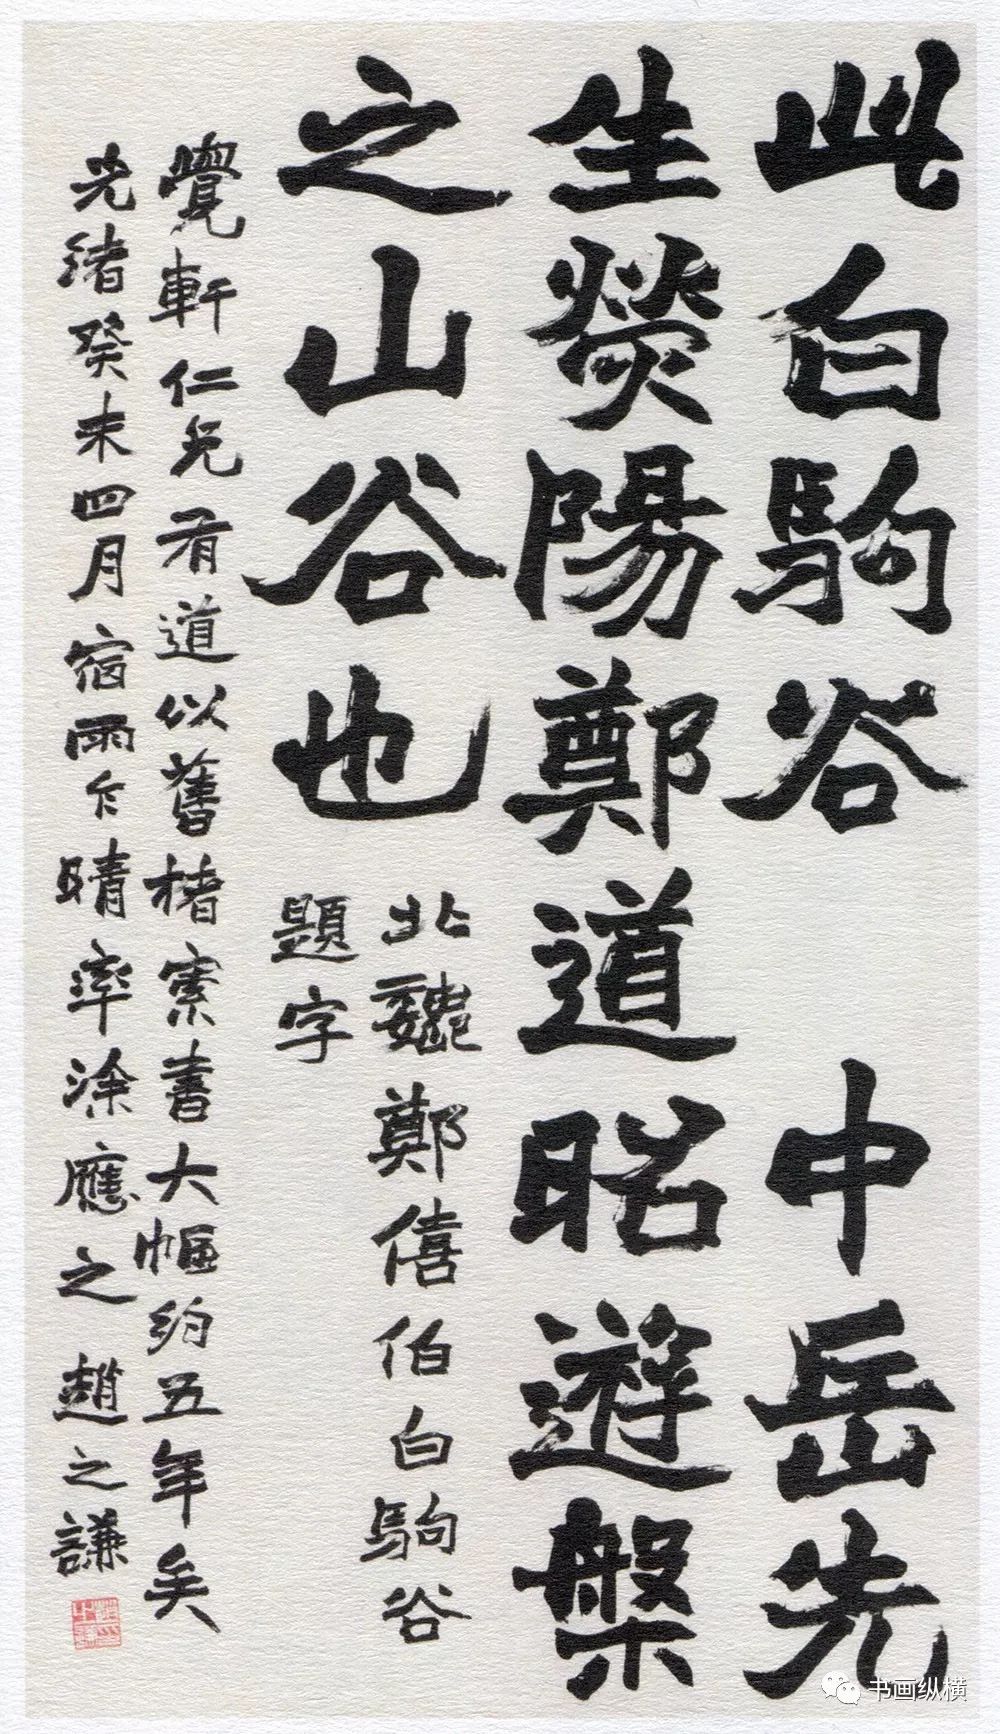 此白駒谷 中岳先
生熒陽鄭道昭遊槃
之山谷也
北魏鄭僖伯白駒谷
題字
覺軒仁兄有道以舊楮索書大幅約五年矣
光緒癸未四月宿雨乍晴率涂應之 趙之謙
书画纵横